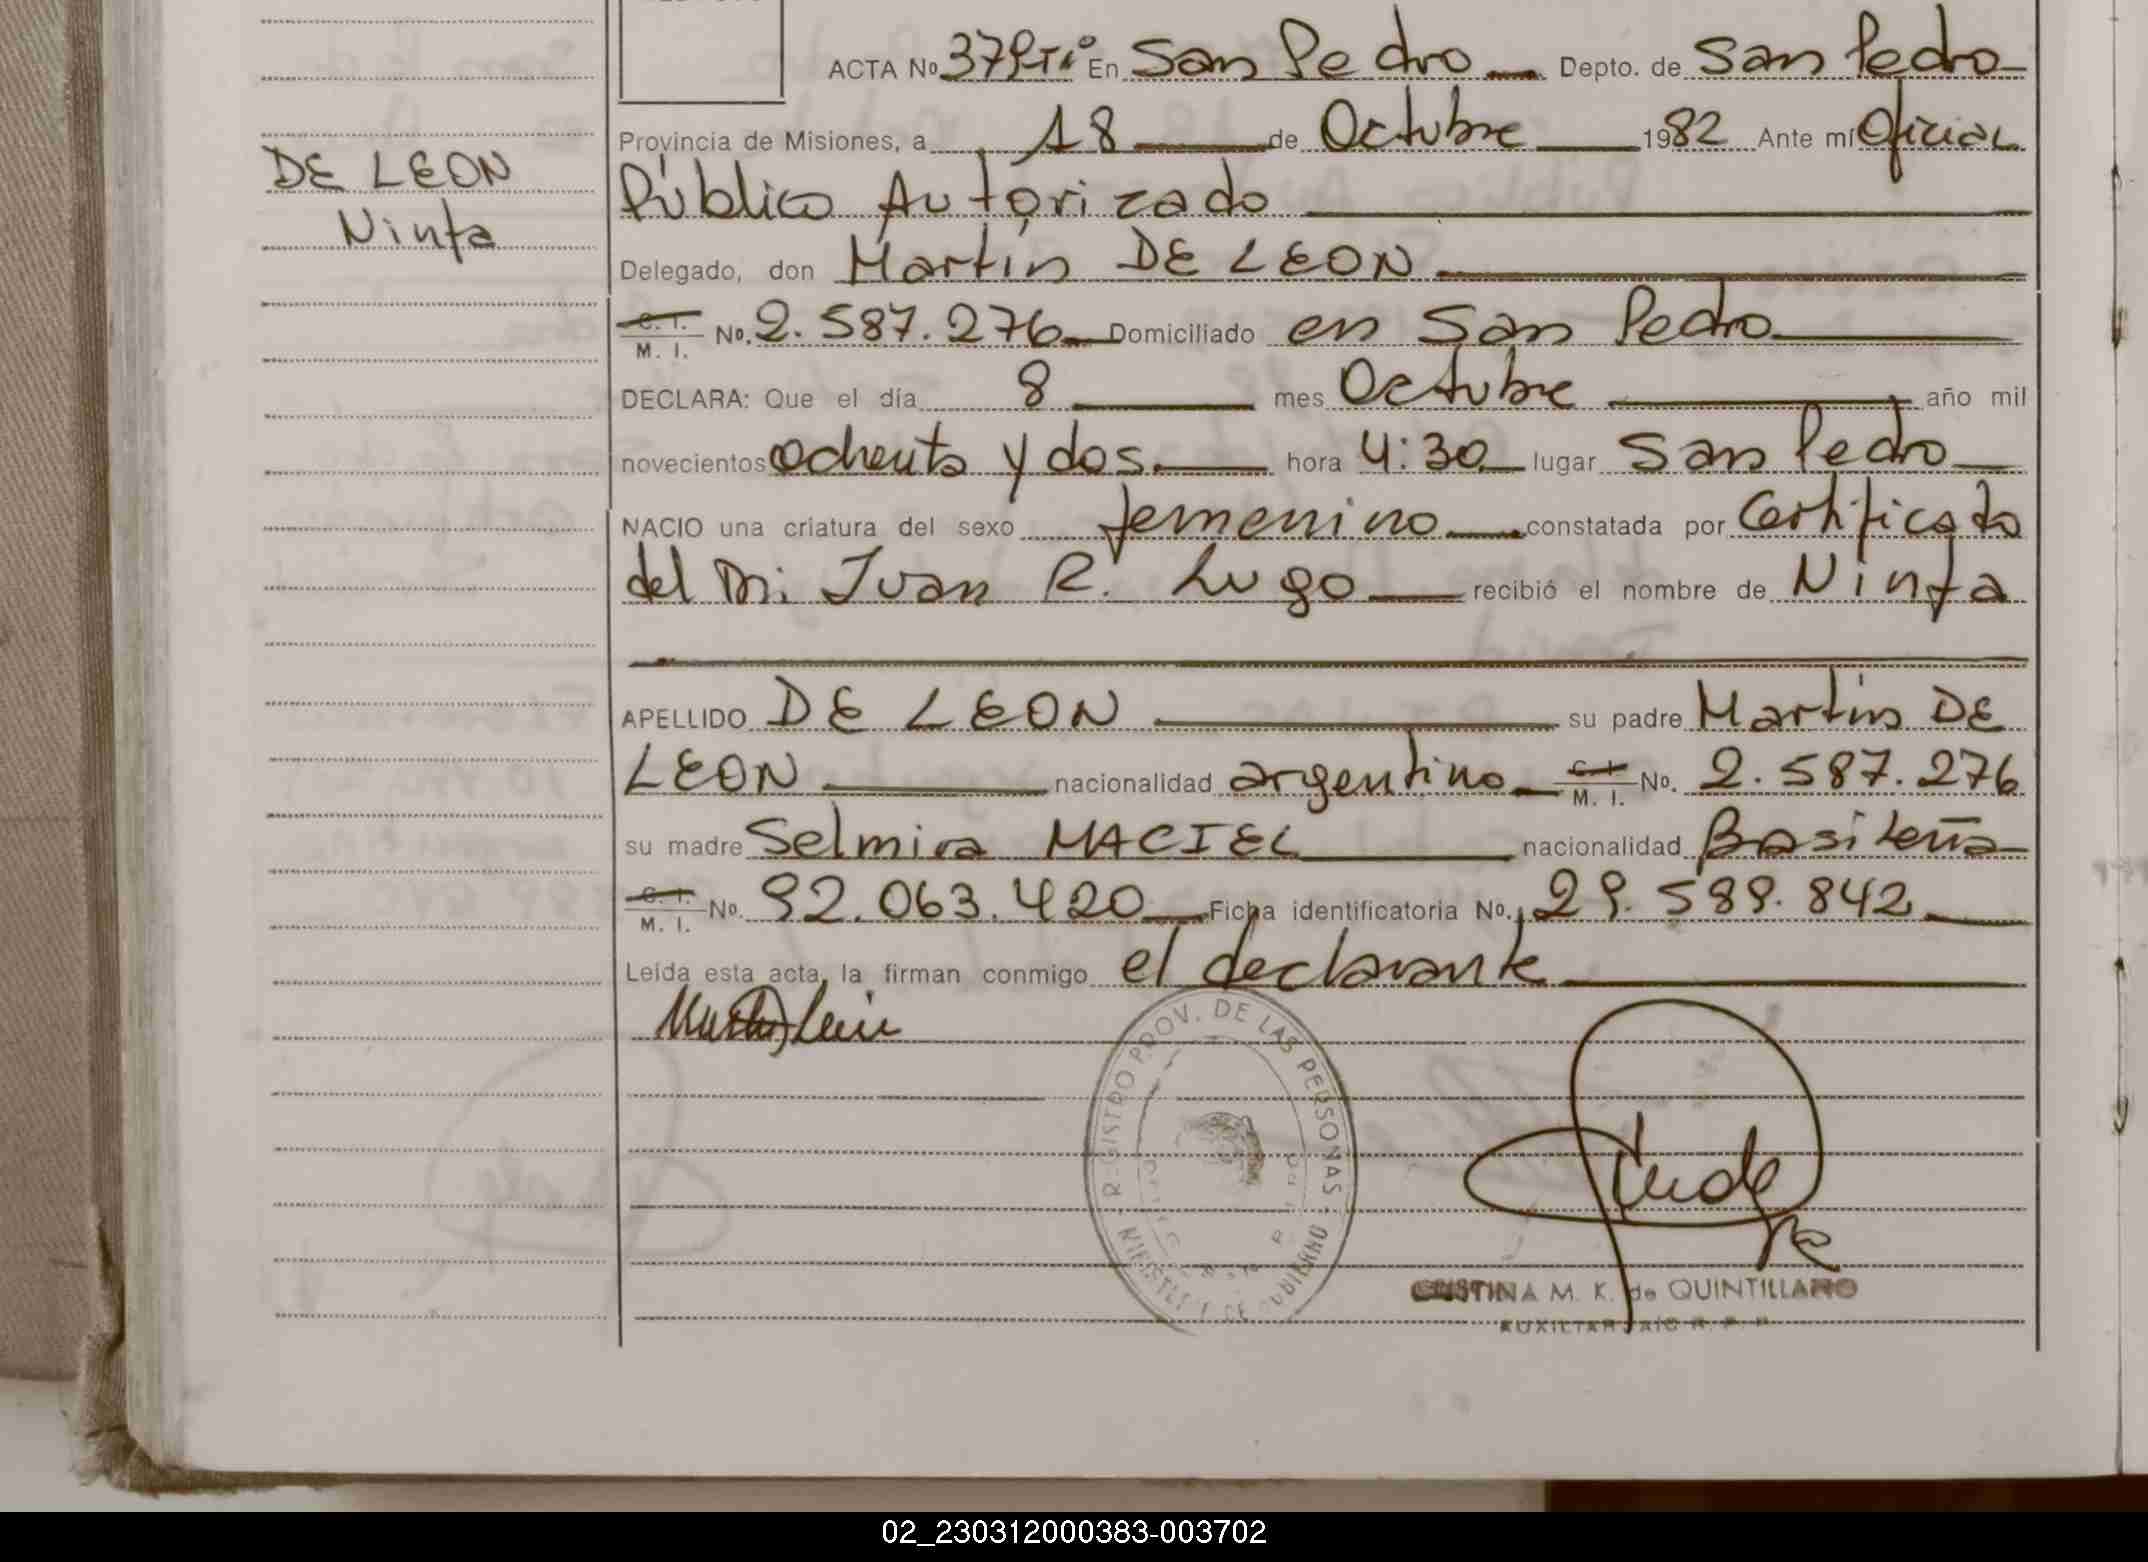 ACTA Nº 379 Tº En San Pedro Depto. de San Pedro
Provincia de Misiones, a 18 de Octubre 1982 Ante mí Oficial
DE LEON
Público Autorizado
Ninfa
Delegado, don Martín DE LEON
C. I.
M. I. Nº. 2.587.276 Domiciliado en San Pedro
DECLARA: Que el día 8 mes Octubre año mil
novecientos ochenta y dos. hora 4:30 lugar San Pedro
NACIO una criatura del sexo femenino constatada por Certificado
del Juan R. Lugo recibió el nombre de Ninfa
APELLIDO DE LEON su padre Martín DE
LEON nacionalidad argentino C. I. M. I. Nº. 2.587.276
su madre Selmira MACIEL nacionalidad Basileña
C. I.
M. I. Nº. 92.063.420 Ficha identificatoria Nº. 29.589.842
Leída esta acta, la firman conmigo el declarante
REGISTRO PROV. DE LAS PERSONAS
CRISTINA M. K. de QUINTILLANO
AUXILIAR
02_230312000383-003702